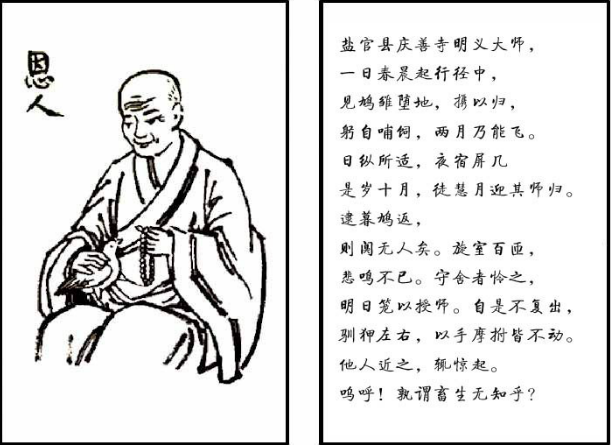 恩
人
盐官县庆善寺明义大师，
一日春晨起行径中，
见鸠雏堕地，携以归，
躬自哺饲，两月乃能飞。
日纵所适，夜宿屏几
是岁十月，徒慧月迎其师归。
逮暮鸠返，
则阒无人矣。旋室百匝，
悲鸣不已。守舍者怜之，
明日笼以授师。自是不复出，
驯狎左右，以手摩拊皆不动。
他人近之，辄惊起。
呜呼！孰谓畜生无知乎？